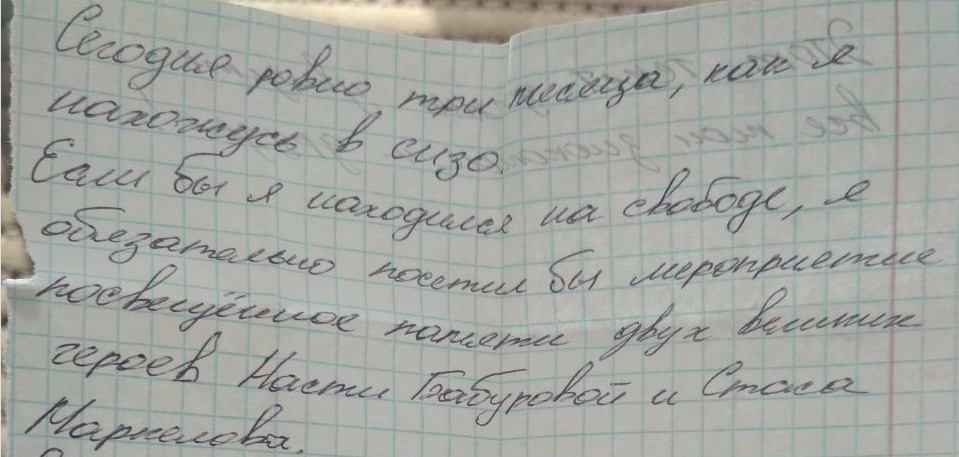 Сегодня ровно три месяца, как я
нахожусь в сизо.
Если бы я находился на свободе, я
обязательно посетил бы мероприятие
посвещённое памяти двух великих
героев Насти Бабуровой и Стаса
Маркелова.